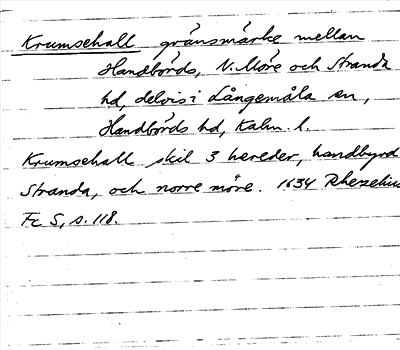 Krumsehall gränsmärke mellan
Handbörds, N. Möre och Stranda
hd, delvis i Långemåla sn,
Handbörds hd, Kalm. l.
Krumsehall skil 3 hereder, handbyrd
Stranda, och norre möre. 1634 Rhezelius
Fc 5, s. 118.